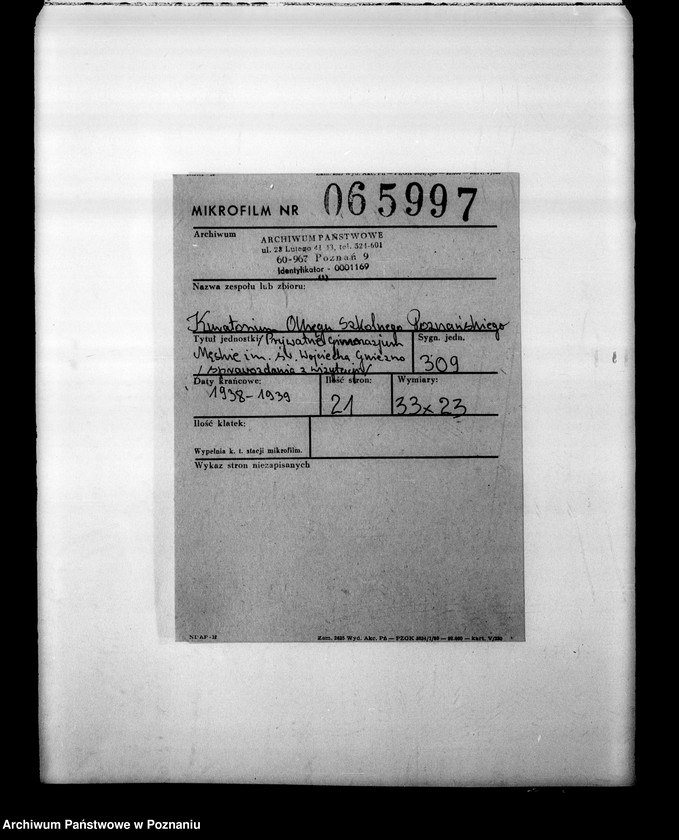 MIKROFILM NR 065997
Archiwum
ARCHIWUM PAŃSTWOWE
ul. 23 Lutego 41/43, tel. 524-601
60-967 Poznań 9
Identyfikator - 0001169
Nazwa zespołu lub zbioru:
Kuratorium Okręgu Szkolnego Poznańskiego
Tytuł jednostki: Prywatne Gimnazjum
Męskie im. św. Wojciecha Gniezno
/sprawozdania z wizytacji/
Sygn. jedn.
309
Daty krańcowe:
1938-1939
Ilość stron:
21
Wymiary:
33x23
Ilość klatek:
Wypełnia k. t. stacji mikrofilm.
Wykaz stron niezapisanych
Archiwum Państwowe w Poznaniu